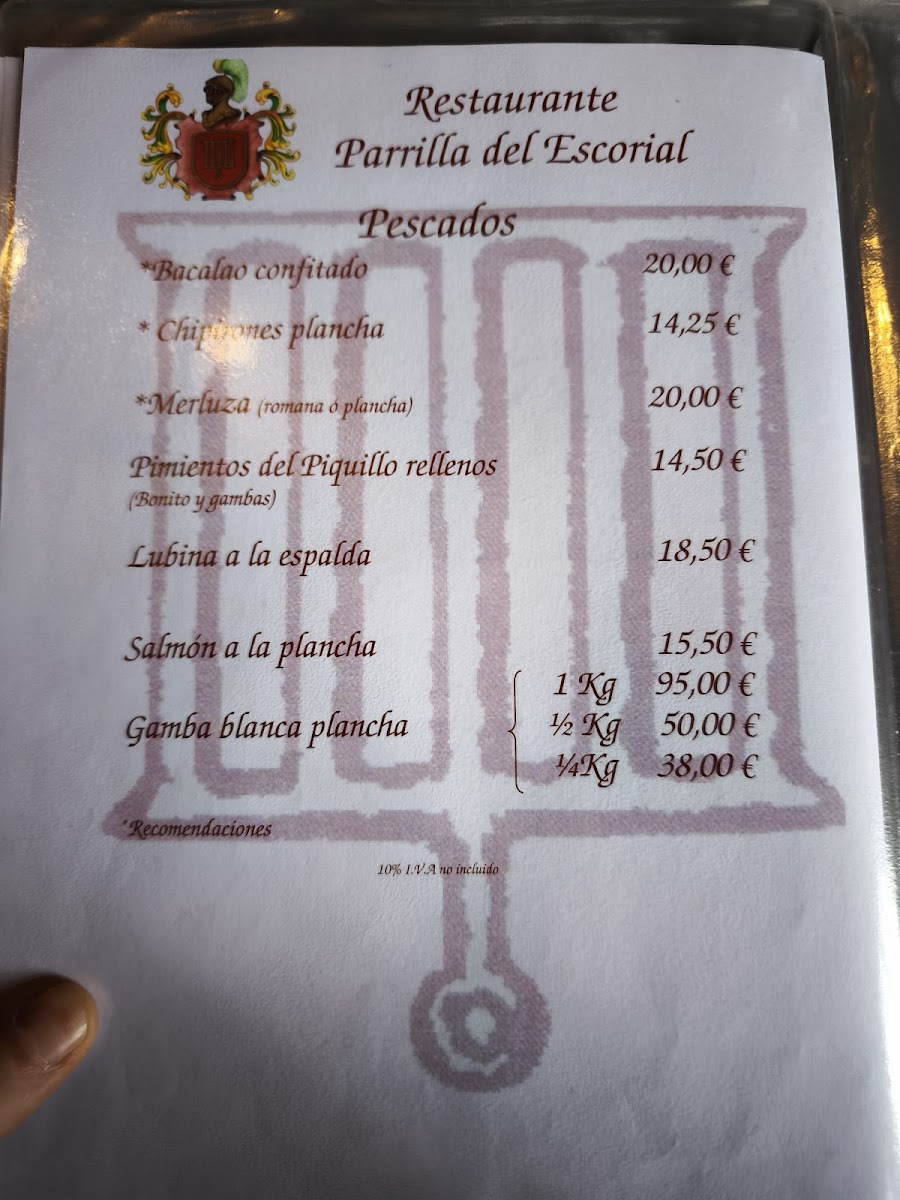 Restaurante
Parrilla del Escorial
Pescados
*Bacalao confitado 20,00 €
* Chipirones plancha 14,25 €
*Merluza (romana ó plancha) 20,00 €
Pimientos del Piquillo rellenos 14,50 €
(Bonito y gambas)
Lubina a la espalda 18,50 €
Salmón a la plancha 15,50 €
1 Kg 95,00 €
Gamba blanca plancha ½ Kg 50,00 €
¼Kg 38,00 €
*Recomendaciones
10% I.V.A no incluido